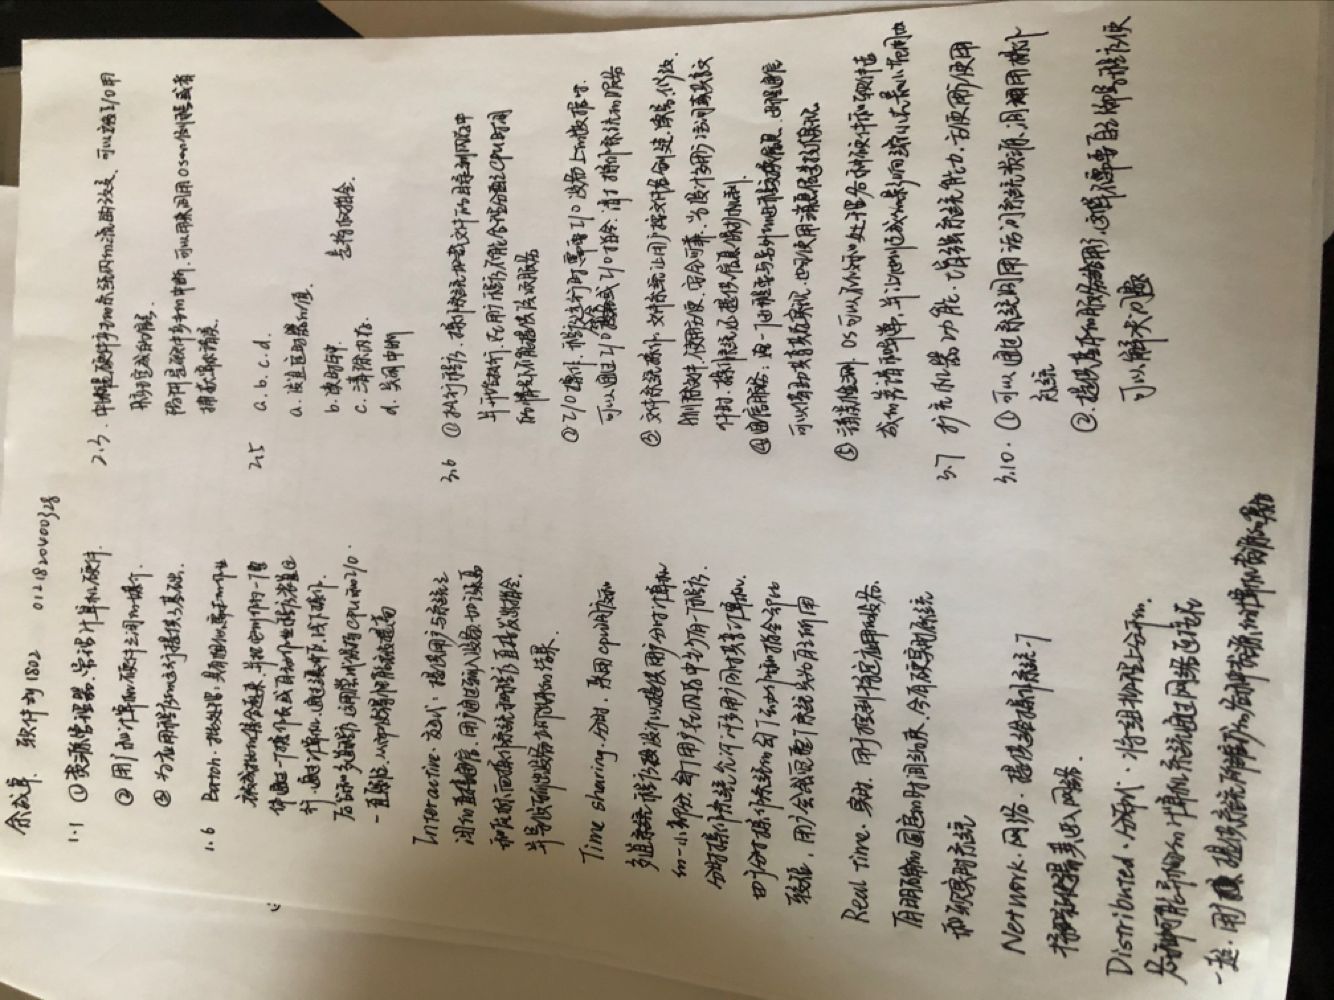 余成卓 软件zy1802 0121820400328
1.1 ①资源管理器、管理计算机硬件.
②用户和计算机硬件之间的媒介.
③为应用程序的运行提供了基础.
1.6 Batch.批处理:具有相似需求的作业
被成批的集合起来,并把它们作为一个整
体通过一个操作员或自动作业程序装置运
行.通过计算机.通过缓冲区,线下操作.
后台和多道程序运用尝试保持CPU和I/O.
一直繁忙.从而使得性能被提高
Interactive.交互式:提供用户与系统之
间的直接通信.用户通过输入设备.如键盘
和鼠标.向操作系统和程序直接发出指令.
并等候输出设备立即出来的结果.
Time sharing.分时.采用cpu调度和
多道系统程序设计以提供用户分时计算机
的一小部分.每个用户在内存中至少有一个程序.
分时操作系统允许许多用户同时共享计算机.
由于分时操作系统的每个动作和指令都比
较短,用户会感觉整个系统只为自己所用
Real time.实时.用于控制特定应用的设备.
有明确的固定的时间约束.分有硬实时系统
和软实时系统
Network.网络.提供给操作系统一个
特征使得其进入网络.
Distributed.分布式.将组物理上分开的.
各种可能异构的计算机系统通过网络连接在
一起.用户提供系统所维护的各种资源的计算机资源的集合
2.3.中断是硬件产生的系统内的流的改变,可以完成I/O用
来
陷阱是软件产生的中断.可以用来调用OS的例程或者
捕获算术错误.
2.5 a.b.c.d.
a.设置定时器的值.
b.读时钟.
c.清除内存.
d.关闭中断
是特权指令.
3.6 ①执行程序.操作系统加载文件的目录到内存中
并开始执行.在用户程序不能合理分配CPU时间
的情况下不能提供该项服务
②I/O操作.程序运行时需要I/O设备上的数据时.
可以通过I/O命令或I/O指令.请求操作系统的服务
③文件系统操作.文件系统让用户按文件名创建.读写.修改
删除文件.使用方便.安全可靠.当设计多用户访问或共享文
件时.操作系统还提供信息保护机制.
④通信服务:在一个进程要与另外的进程交换信息.进程通信
可以借助共享内存实现.也可使用消息传递技术实现.
⑤错误检测.OS可以和处理各种硬件和软件造
成的差错和异常,并让他们造成的影响缩小在最小范围内
3.7 扩充机器功能.增强系统能力.方便用户使用
3.10.①可以通过系统调用访问系统资源.调用操作
系统
②.提供基本的服务给用户.这样不需要自己编写程序便
可以解决问题